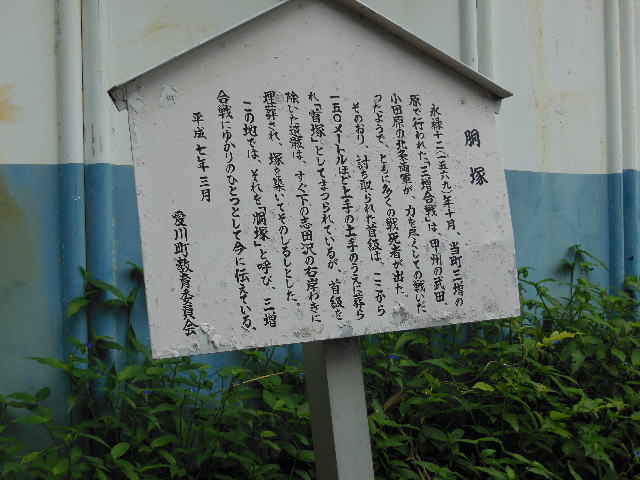 胴塚
永禄十二（一五六九）年十月、当町三増の
原で行われた「三増合戦」は、甲州の武田
小田原の北条両軍が、力を尽くしての戦いだ
ったようで、ともに多くの戦死者が出た。
そのおり、討ち取られた首級は、ここから
一五〇メートルほど上手の土手のうえに葬ら
れ「首塚」としてまつられているが、首級を
除いた遺骸は、すぐ下の志田沢の右岸わきに
埋葬され、塚を築いてそのしるしとした。
この地では、それを「胴塚」と呼び、三増
合戦にゆかりのひとつとして今に伝えている。
平成七年三月
愛川町教育委員会